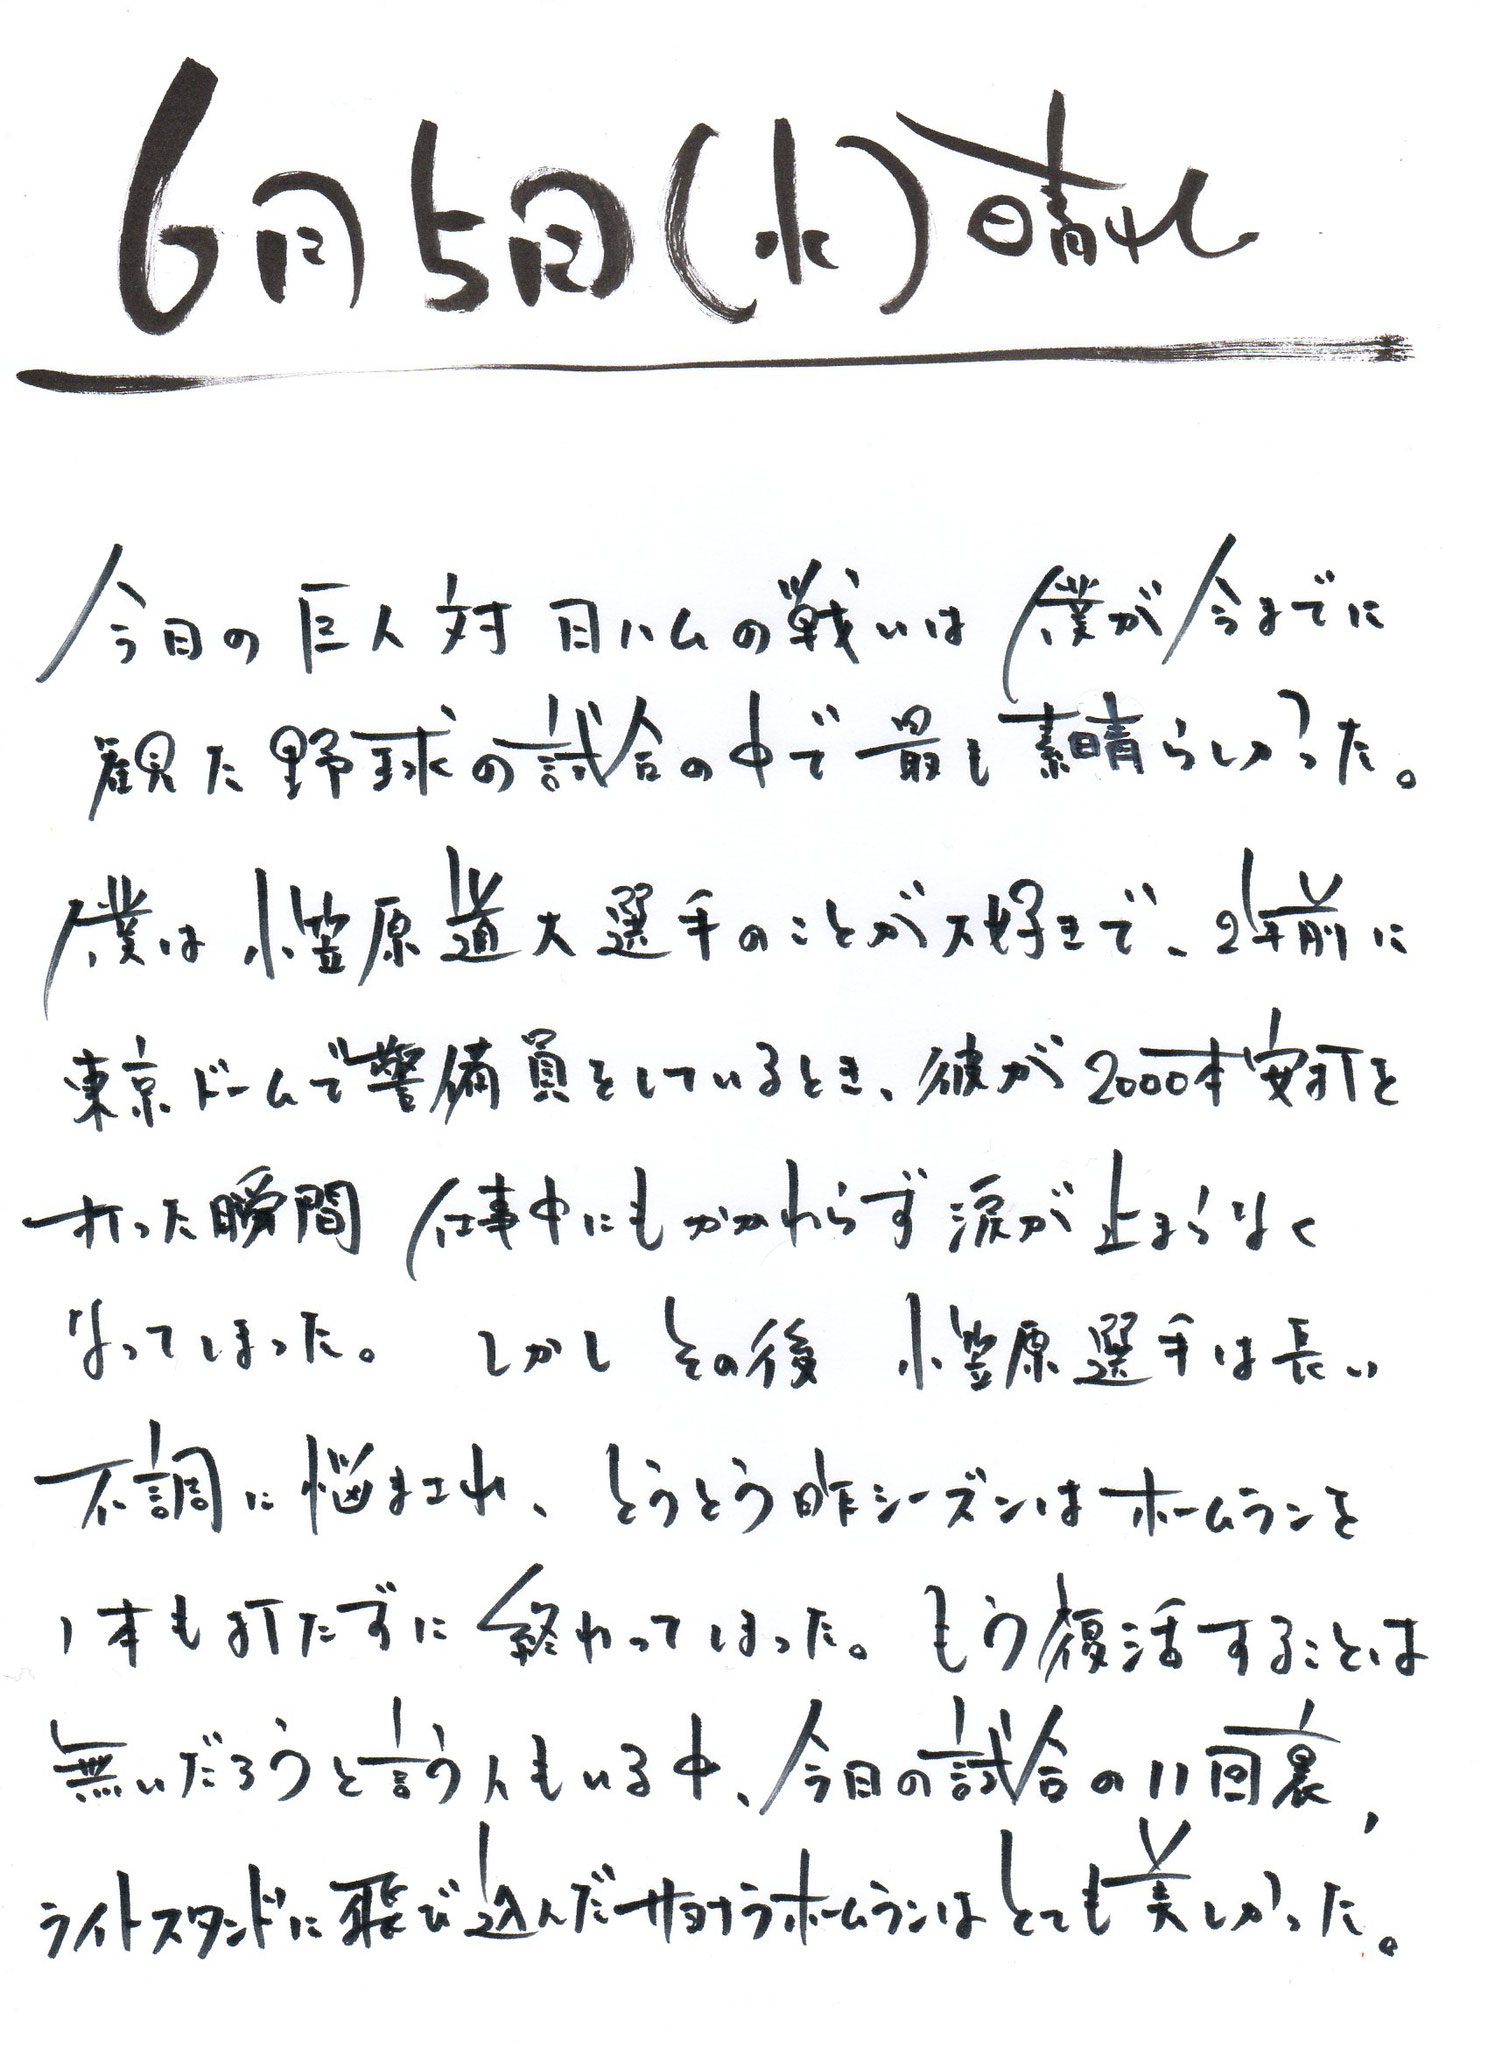 6月5日(水)晴れ
今日の巨人対日ハムの戦いは僕が今までに
観た野球の試合の中で最も素晴らしかった。
僕は小笠原道大選手のことが大好きで、2年前に
東京ドームで警備員をしているとき、彼が2000本安打を
打った瞬間 仕事中にもかかわらず涙が止まらなく
なってしまった。 しかし その後 小笠原選手は長い
不調に悩まされ、とうとう昨シーズンはホームランを
1本も打たずに終わってしまった。もう復活することは
無いだろうと言う人もいる中、今日の試合の11回裏、
ライトスタンドに飛び込んだサヨナラホームランはとても美しかった。